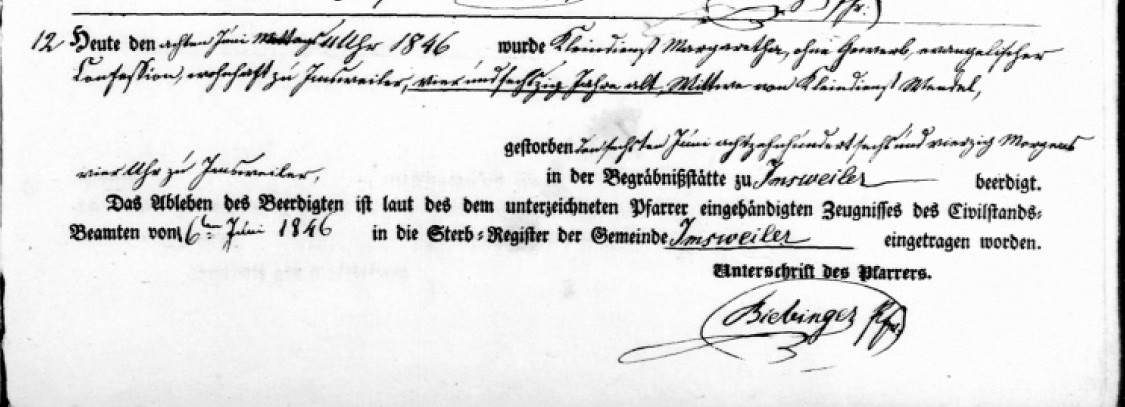 12 Heute den achten Juni Mittags 11 Uhr 1846 wurde Kleindienst Margaretha, ohne Gewerb, evangelischer
Confession, wohnhaft zu Imsweiler, vier und sechszig Jahre alt, Wittwe von Kleindienst Wendel,
gestorben den sechsten Juni achtzehnhundert sechs und vierzig Morgens
vier Uhr zu Imsweiler, in der Begräbnißstätte zu Imsweiler beerdigt.
Das Ableben des Beerdigten ist laut des dem unterzeichneten Pfarrer eingehändigten Zeugnisses des Civilstands-
Beamten vom 6ten Juni 1846 in die Sterb-Register der Gemeinde Imsweiler eingetragen worden.
Unterschrift des Pfarrers.
Biebinger Pfr.